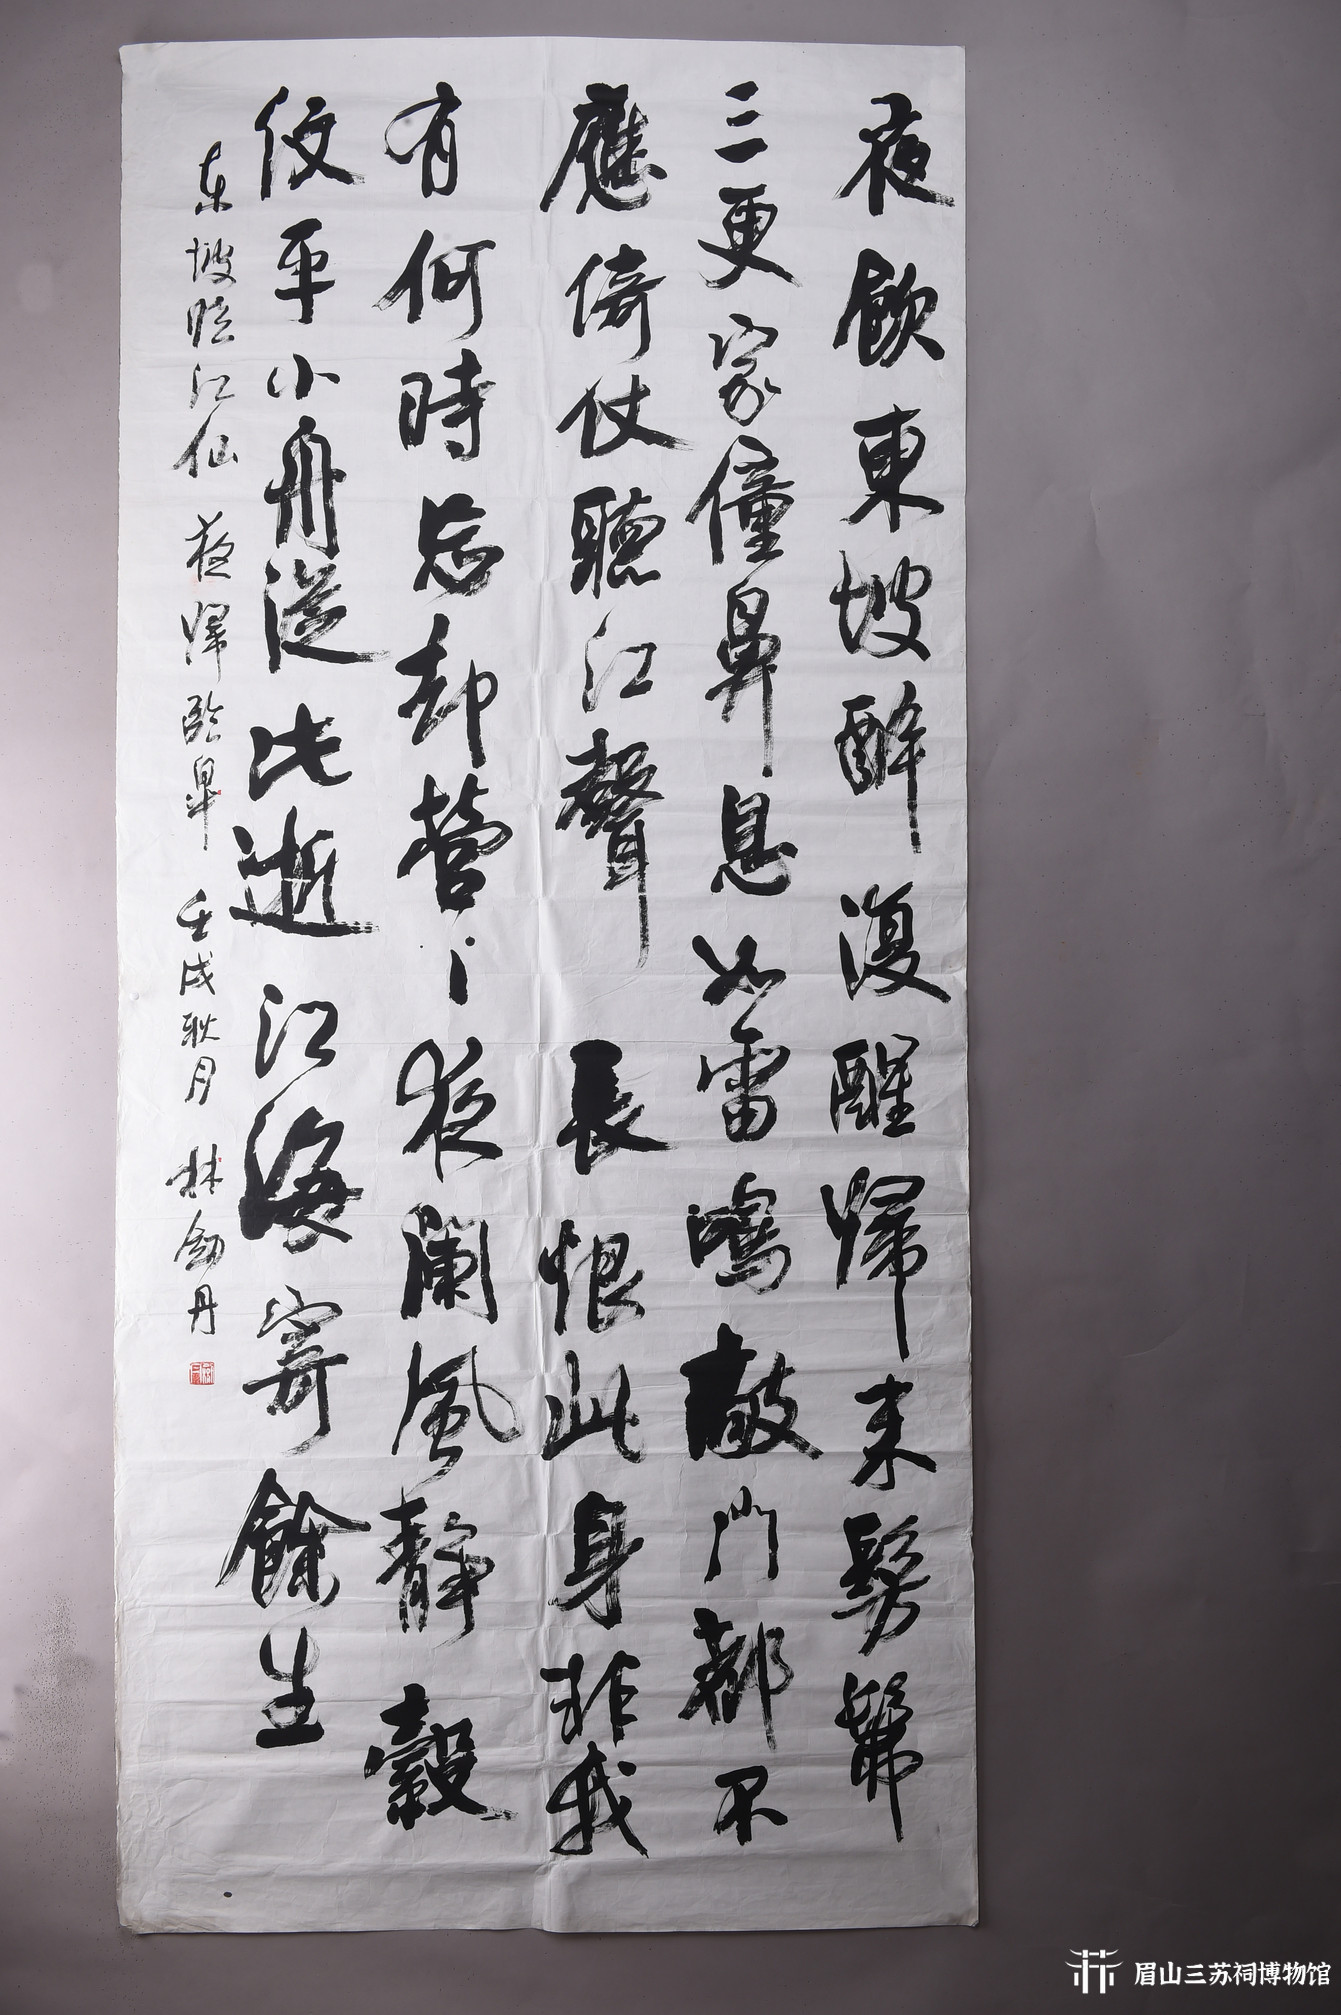 夜飲東坡醉復醒歸來髣髴
三更家僮鼻息如雷鳴敲門都不
應倚仗聽江聲 長恨此身非我
有何時忘却營營夜闌風靜縠
紋平小舟從此逝江海寄餘生
东坡临江仙 夜歸臨皋 壬戌秋月 林劍丹
眉山三苏祠博物馆